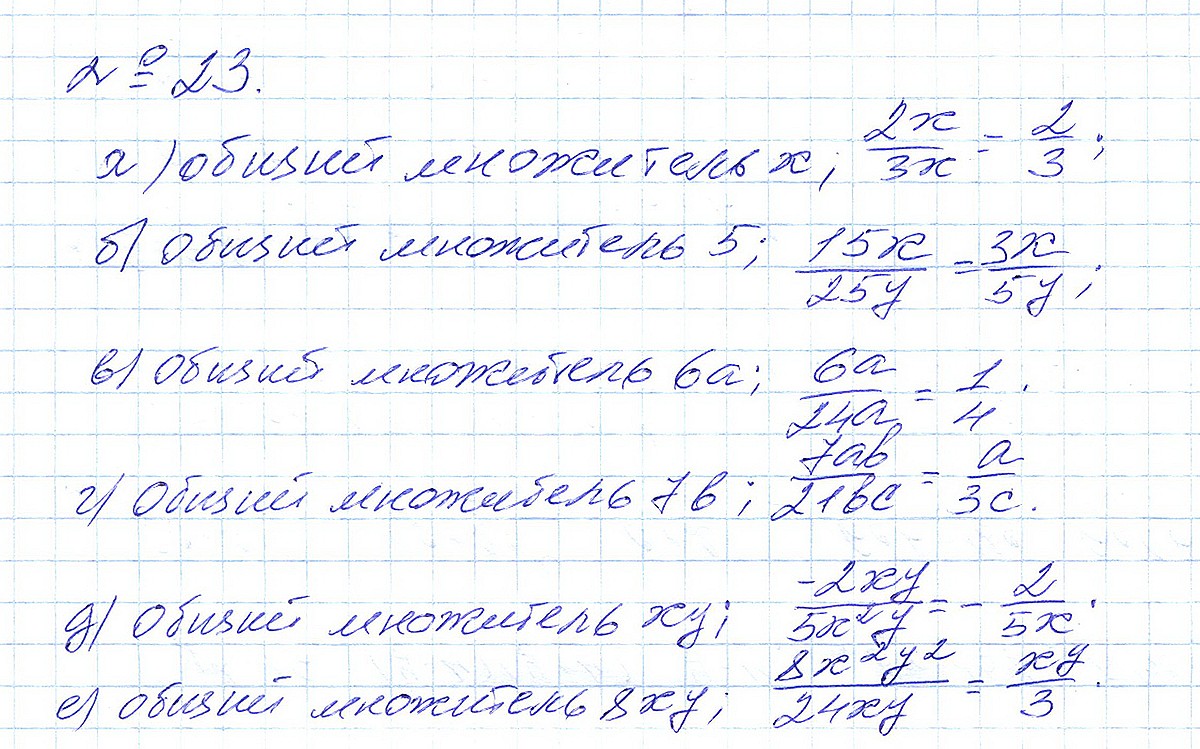 № 23.
а) общий множитель x; 2x/3x = 2/3;
б) Общий множитель 5; 15x/25y = 3x/5y;
в) Общий множитель 6a; 6a/24a = 1/4.
г) Общий множитель 7b; 7ab/21bc = a/3c.
д) Общий множитель xy; -2xy/5x²y = -2/5x.
е) общий множитель 8xy; 8x²y²/24xy = xy/3.